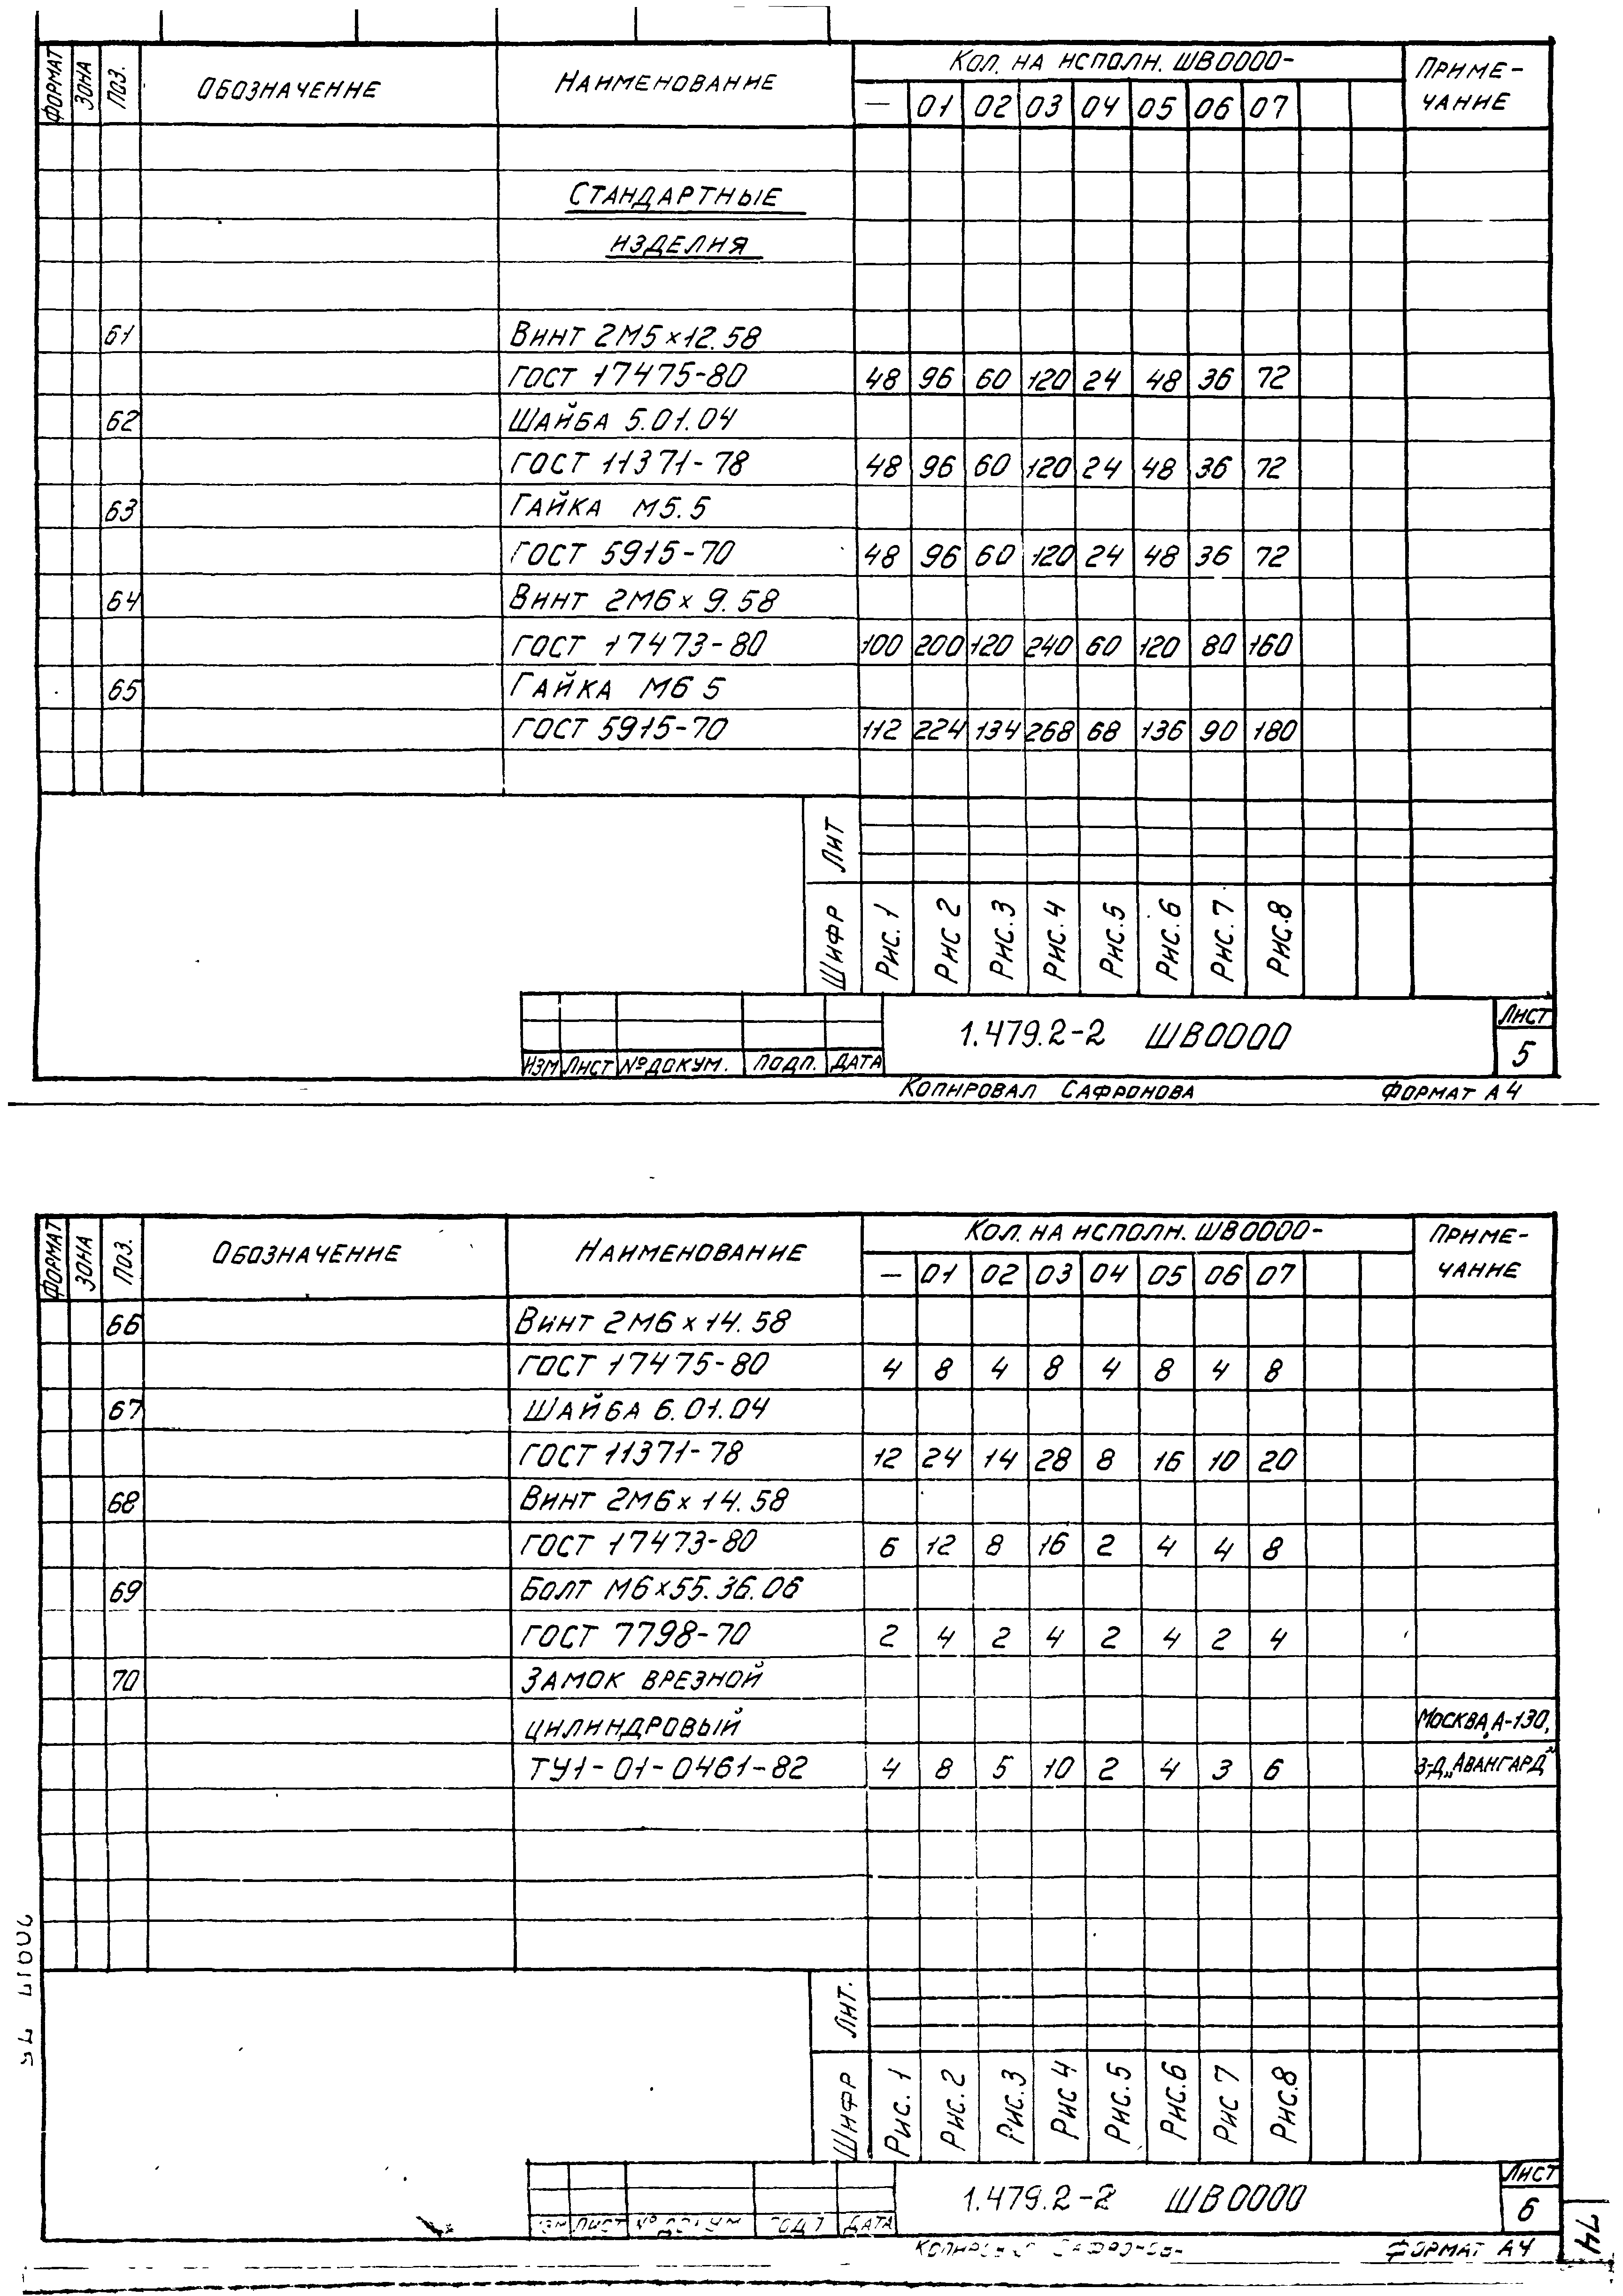 ФОРМАТ ЗОНА ПОЗ. ОБОЗНАЧЕНИЕ НАИМЕНОВАНИЕ КОЛ. НА ИСПОЛН. ШВ0000- ПРИМЕ-
— 01 02 03 04 05 06 07 ЧАНИЕ
СТАНДАРТНЫЕ
ИЗДЕЛИЯ
61 ВИНТ 2М5×12.58
ГОСТ 17475-80 48 96 60 120 24 48 36 72
62 ШАЙБА 5.01.04
ГОСТ 11371-78 48 96 60 120 24 48 36 72
63 ГАЙКА М5.5
ГОСТ 5915-70 48 96 60 120 24 48 36 72
64 ВИНТ 2М6×9.58
ГОСТ 17473-80 100 200 120 240 60 120 80 160
65 ГАЙКА М6 5
ГОСТ 5915-70 112 224 134 268 68 136 90 180
ЛИТ
ШИФР Рис. 1 Рис 2 Рис.3 Рис. 4 Рис.5 Рис.6 Рис.7 Рис.8
1.479.2-2 ШВ0000 ЛИСТ
ИЗМ ЛИСТ № ДОКУМ. ПОДП. ДАТА 5
КОПИРОВАЛ САФРОНОВА ФОРМАТ А4
ФОРМАТ ЗОНА ПОЗ. ОБОЗНАЧЕНИЕ НАИМЕНОВАНИЕ КОЛ. НА ИСПОЛН. ШВ0000- ПРИМЕ-
— 01 02 03 04 05 06 07 ЧАНИЕ
66 ВИНТ 2М6×14.58
ГОСТ 17475-80 4 8 4 8 4 8 4 8
67 ШАЙБА 6.01.04
ГОСТ 11371-78 12 24 14 28 8 16 10 20
68 ВИНТ 2М6×14.58
ГОСТ 17473-80 6 12 8 16 2 4 4 8
69 БОЛТ М6×55.36.06
ГОСТ 7798-70 2 4 2 4 2 4 2 4
70 ЗАМОК ВРЕЗНОЙ
ЦИЛИНДРОВЫЙ МОСКВА, А-130,
ТУ1-01-0461-82 4 8 5 10 2 4 3 6 З-Д „АВАНГАРД"
ЛИТ.
ШИФР Рис. 1 Рис. 2 Рис.3 Рис 4 Рис.5 Рис.6 Рис 7 Рис.8
1.479.2-2 ШВ0000 ЛИСТ
ЛИСТ ДАТА 6
ФОРМАТ А4
74